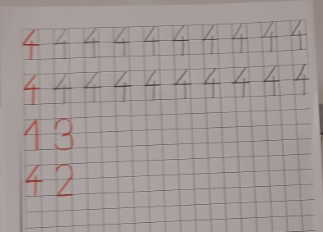 4 4 4 4 4 4 4 4 4 4
4 4 4 4 4 4 4 4 4 4
1 3
4 2